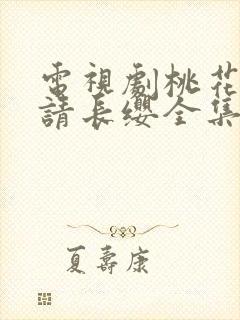 電視劇桃花
請長纓全集
夏壽康